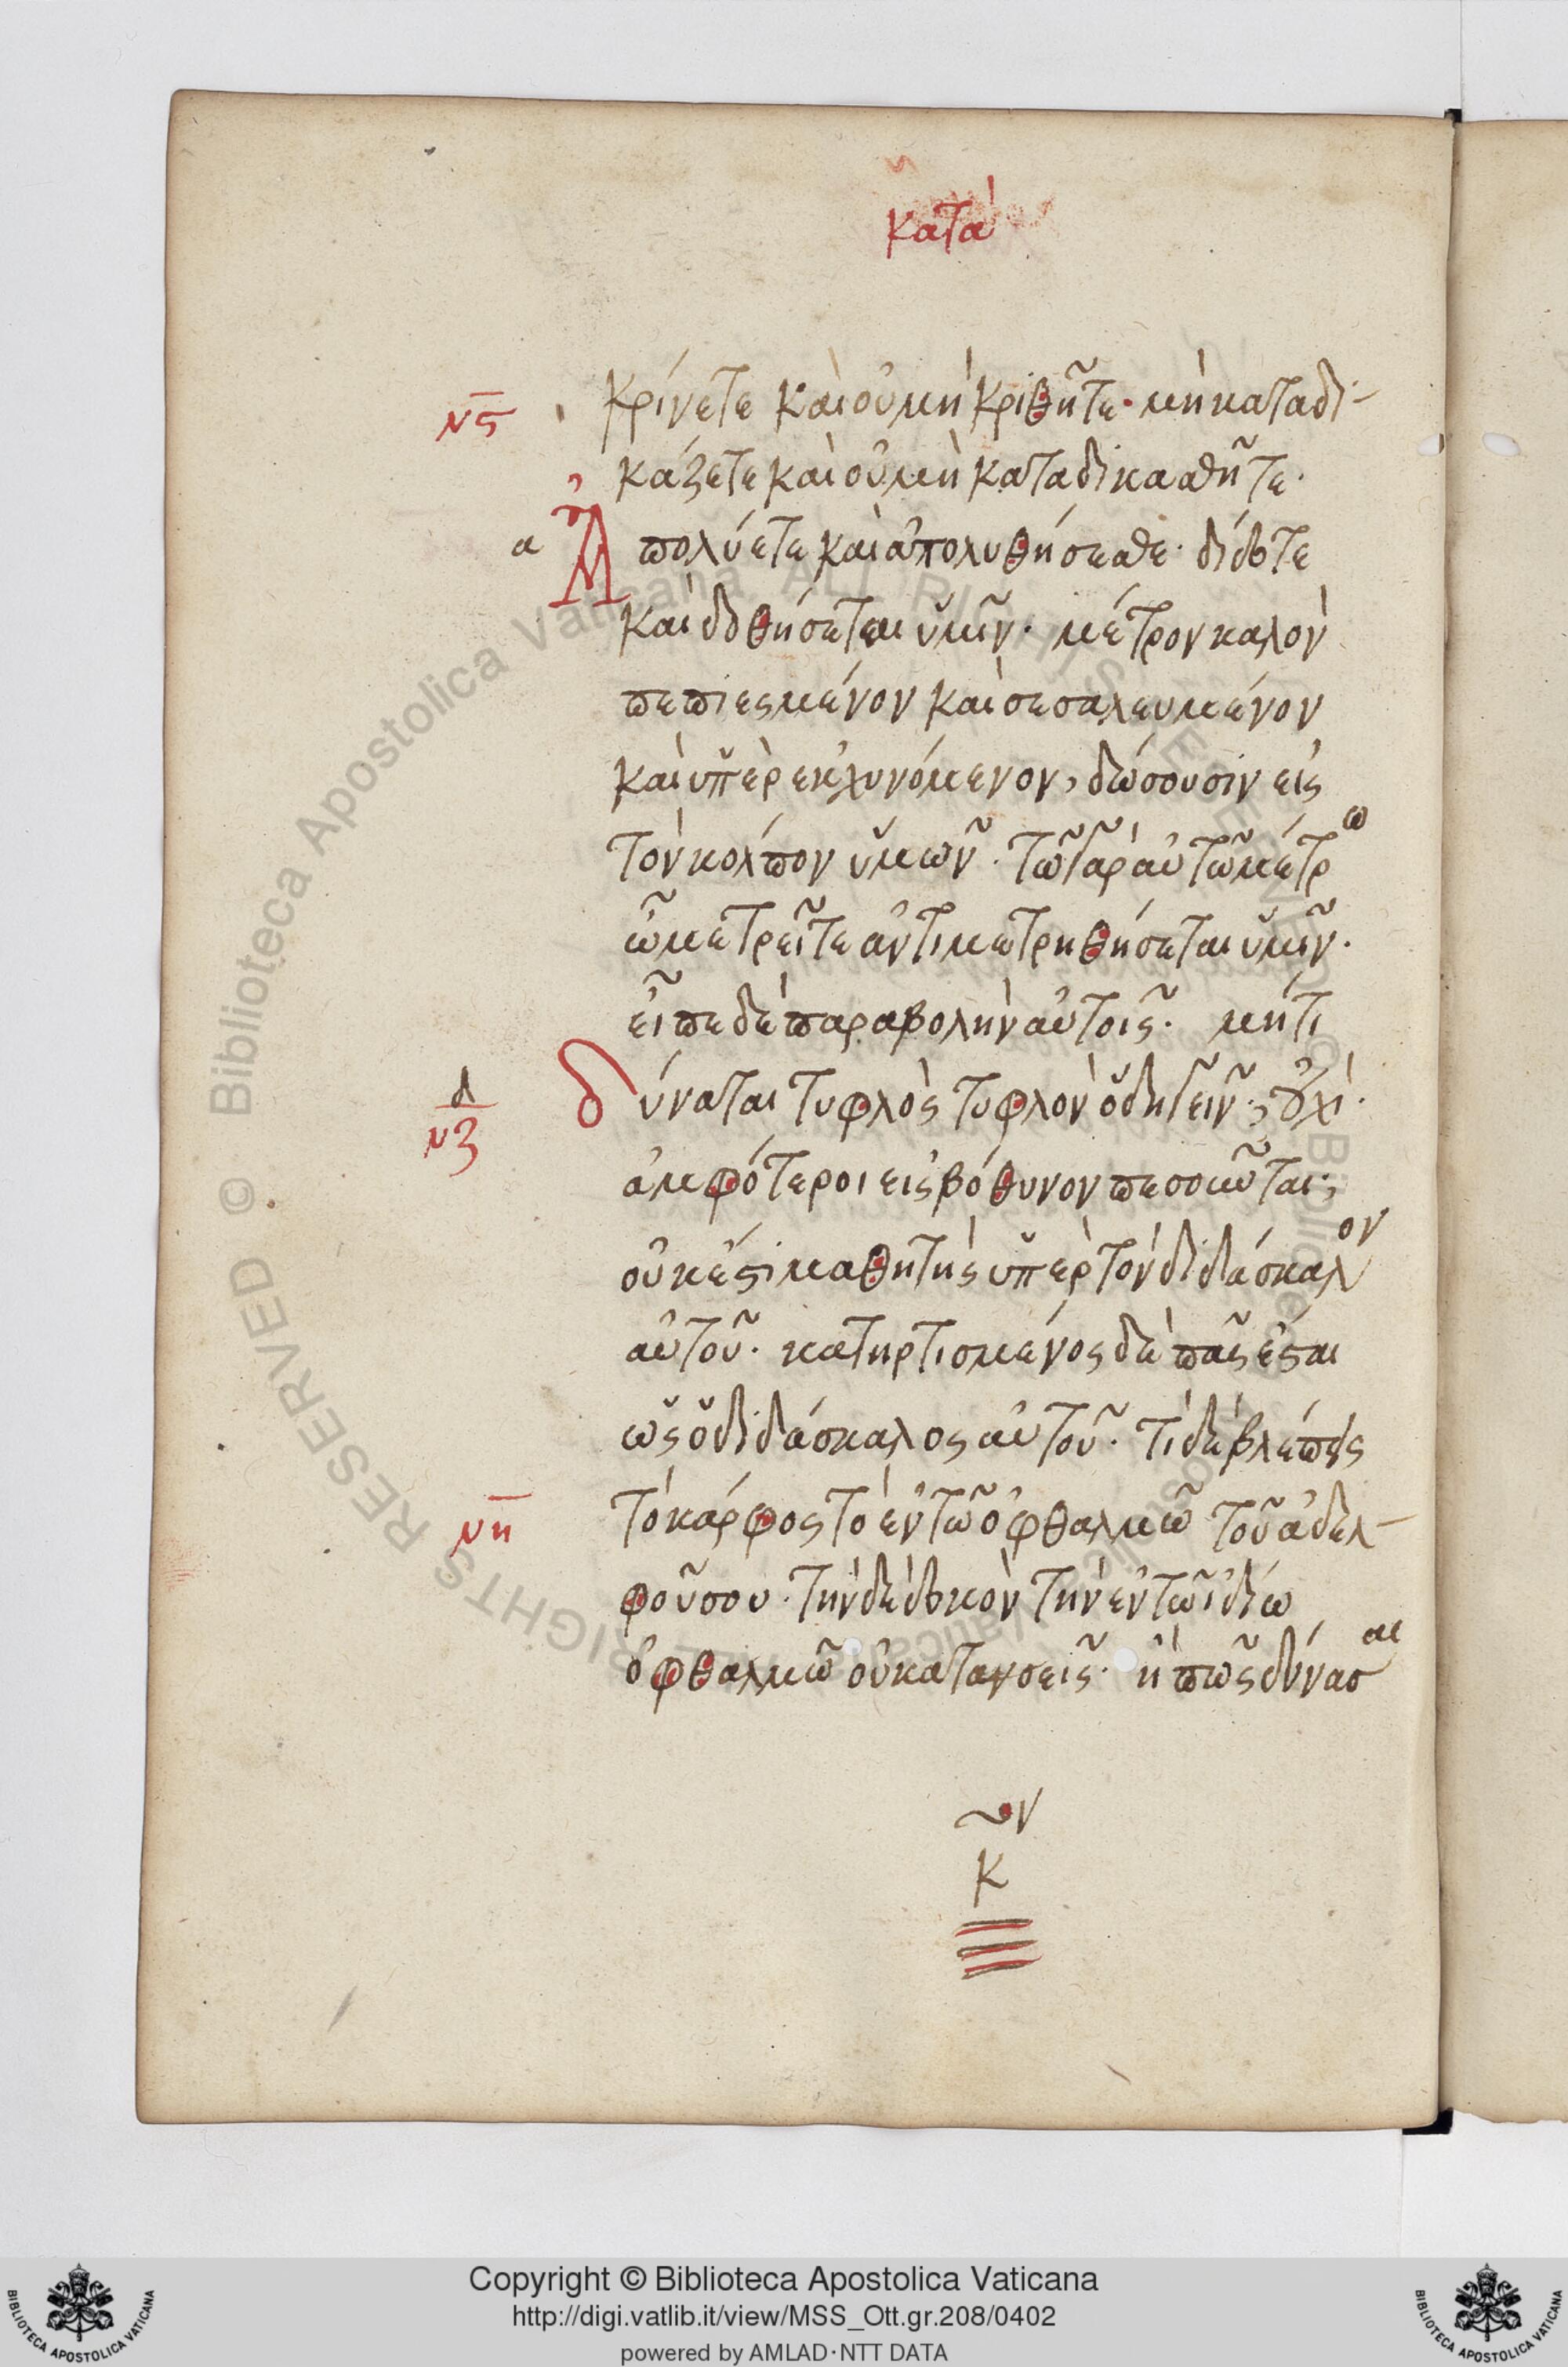 κατὰ
νς κρίνετε καὶ οὐ μὴ κριθῆτε· μὴ καταδι-
κάζετε καὶ οὐ μὴ καταδικασθῆτε·
α Ἀπολύετε καὶ ἀπολυθήσεσθε· δίδοτε
καὶ δοθήσεται ὑμῖν· μέτρον καλὸν
πεπιεσμένον καὶ σεσαλευμένον
καὶ ὑπὲρ εκχυνόμενον, δώσουσιν εἰς
τὸν κόλπον ὑμῶν· τῶ γὰρ αὐτῶ μέτρω
ὧ μετρεῖτε ἀντιμετρηθήσεται ὑμῖν·
εἶπε δὲ παραβολὴν αὐτοῖς· μήτι
δύναται τυφλὸς τυφλὸν ὁδηγεῖν; οὐχὶ·
λ
νζ
ἀμφότεροι εἰς βόθυνον πεσοῦνται;
οὐκ ἔστι μαθητὴς ὑπὲρ τὸν διδάσκαλον
αὐτοῦ· κατηρτισμένος δὲ πᾶς ἔσται
ὡς ὁ διδάσκαλος αὐτοῦ· τί δὲ βλέπεις
νη τὸ κάρφος τὸ ἐν τῶ ὀφθαλμῶ τοῦ ἀδελ-
φοῦ σου· τὴν δὲ δοκὸν τὴν ἐν τῶ ἰδίω
ὀφθαλμῶ οὐ κατανοεῖς· ἢ πῶς δύνασαι
κ
Copyright © Biblioteca Apostolica Vaticana
http://digi.vatlib.it/view/MSS_Ott.gr.208/0402
powered by AMLAD·NTT DATA
© Biblioteca Apostolica Vaticana ALL RIGHTS RESERVED
BIBLIOTECA APOSTOLICA VATICANA
BIBLIOTECA APOSTOLICA VATICANA